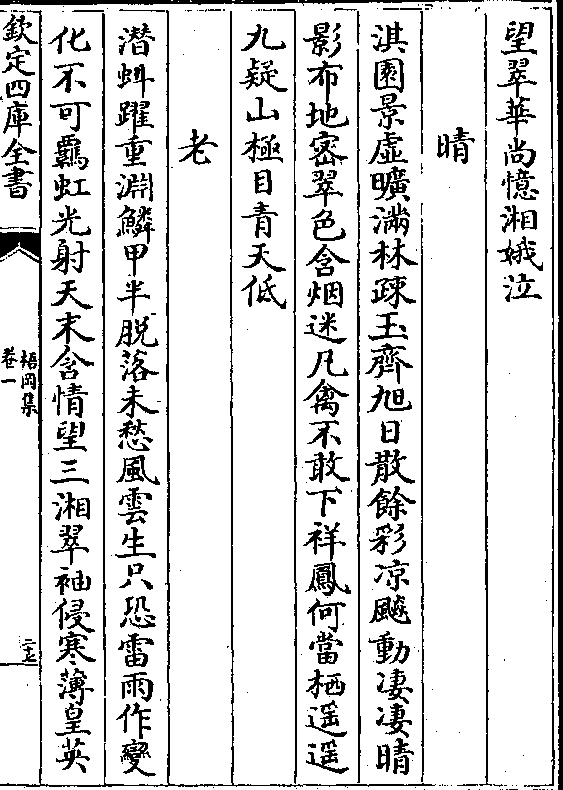 望翠華尚憶湘娥泣
晴
淇園景虛曠滿林疎玉齊旭日散餘彩凉飈動淒淒晴
影布地密翠色含烟迷凡禽不敢下祥鳳何當栖遥遥
九疑山極目青天低
老
潛虯躍重淵鱗甲半脱落未愁風雲生只恐雷雨作變
化不可覊虹光射天末含情望三湘翠袖侵寒薄皇英
欽定四庫全書
梧岡集
卷一
二十七